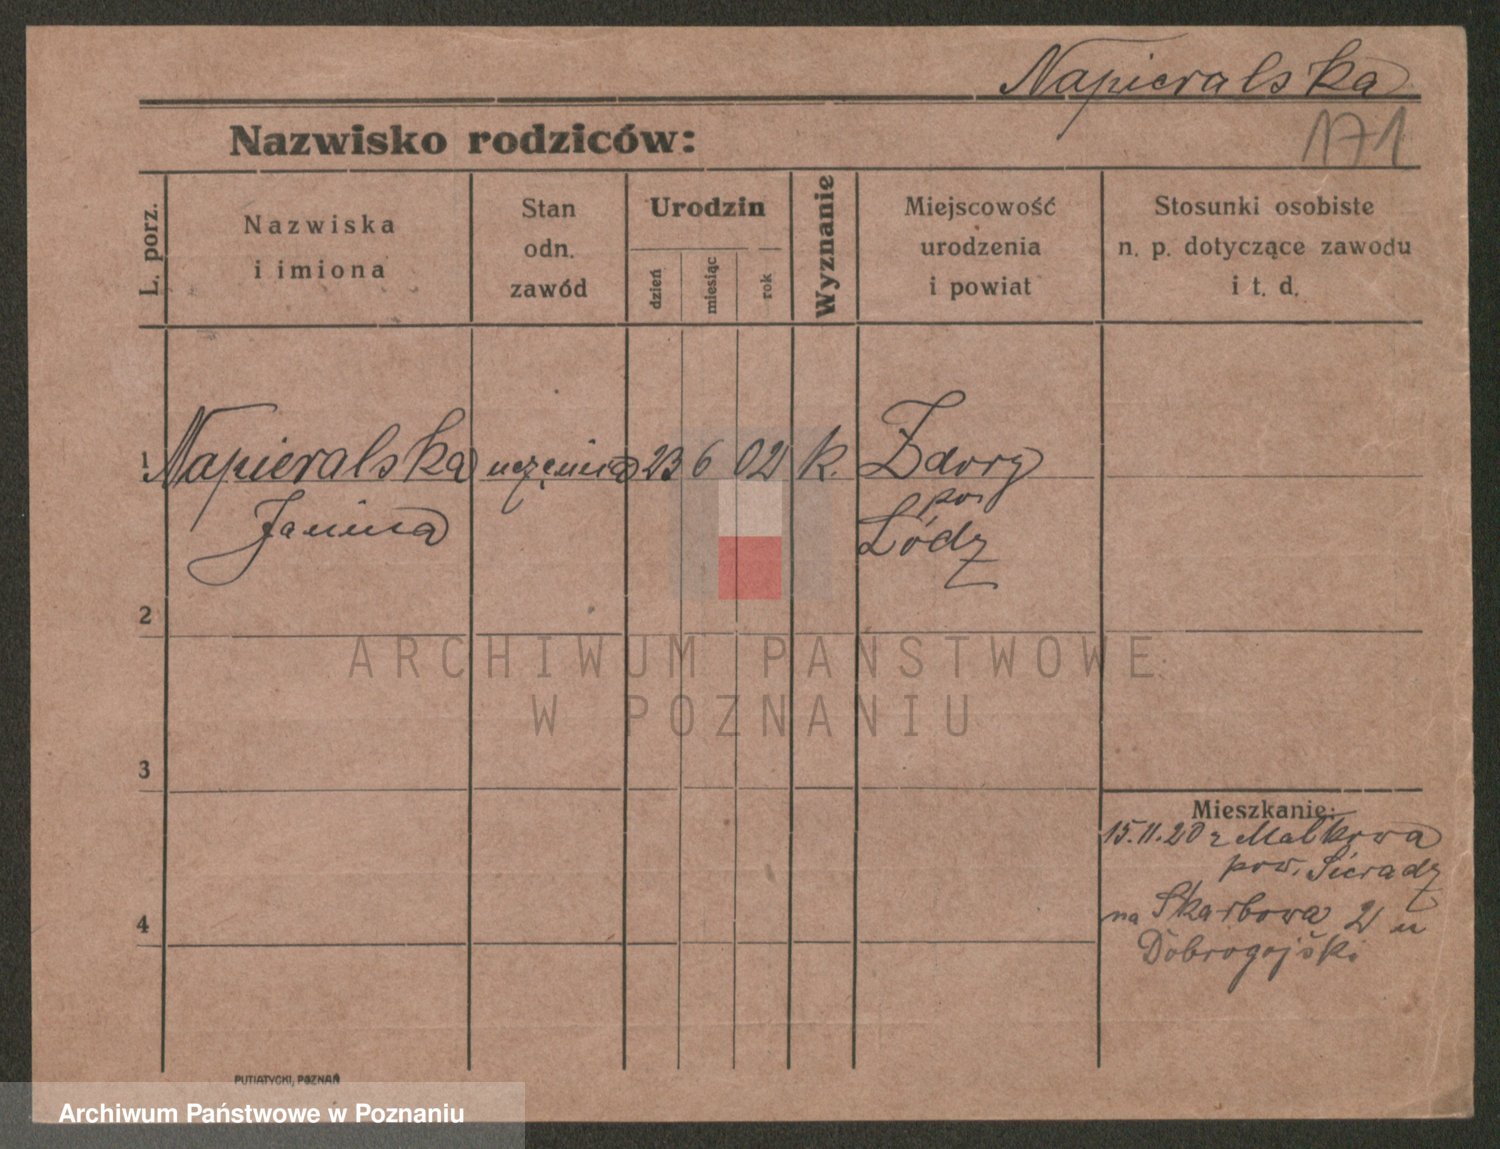 Napieralska
171
Nazwisko rodziców:
L. porz.
Nazwiska
i imiona
Stan
odn.
zawód
Urodzin
dzień
miesiąc
rok
Wyznanie
Miejscowość
urodzenia
i powiat
Stosunki osobiste
n. p. dotyczące zawodu
i t. d.
1. Napieralska uczenica 23 6 02 k. Zdory
Janina
pow
Łódz
2
3
4
Mieszkanie:
15.11.20 z Malkowa
pow. Sieradz
na Skarbowa 2 u
Dobrogojski
PUTIATYCKI, POZNAŃ
ARCHIWUM PAŃSTWOWE
W POZNANIU
Archiwum Państwowe w Poznaniu